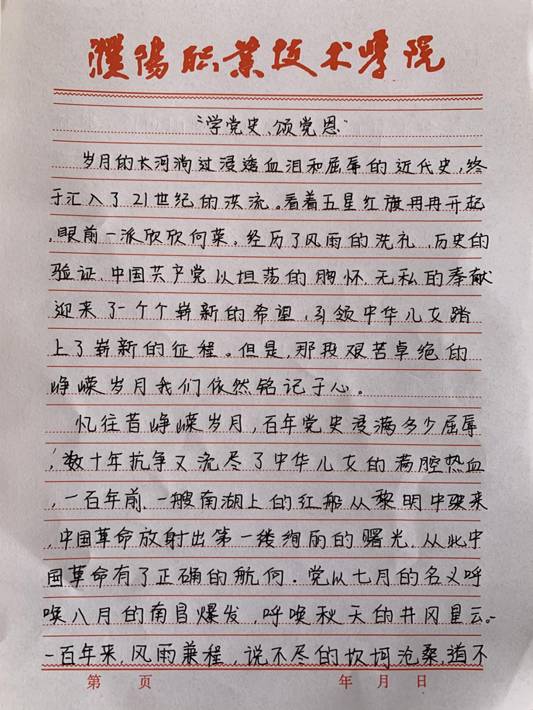 濮阳职业技术学院
“学党史、颂党恩”
岁月的长河淌过浸透血泪和屈辱的近代史，终
于汇入了21世纪的洪流。看着五星红旗冉冉开起
，眼前一派欣欣何荣。经历了风雨的洗礼，历史的
验证，中国共产党以坦荡的胸怀，无私的奉献
迎来了一个个崭新的希望，引领中华儿女踏
上了崭新的征程。但是，那段艰苦卓绝的
峥嵘岁月我们依然铭记于心。
忆往昔峥嵘岁月，百年党史浸满多少屈辱
，数十年抗争又流尽了中华儿女的满腔热血
，一百年前，一艘南湖上的红船从黎明中驶来
，中国革命放射出第一缕绚丽的曙光，从此中
国革命有了正确的航向。党以七月的名义呼
唤八月的南昌爆发，呼唤秋天的井冈星云。
一百年来，风雨兼程，说不尽的坎坷沧桑，道不
第 页 年 月 日